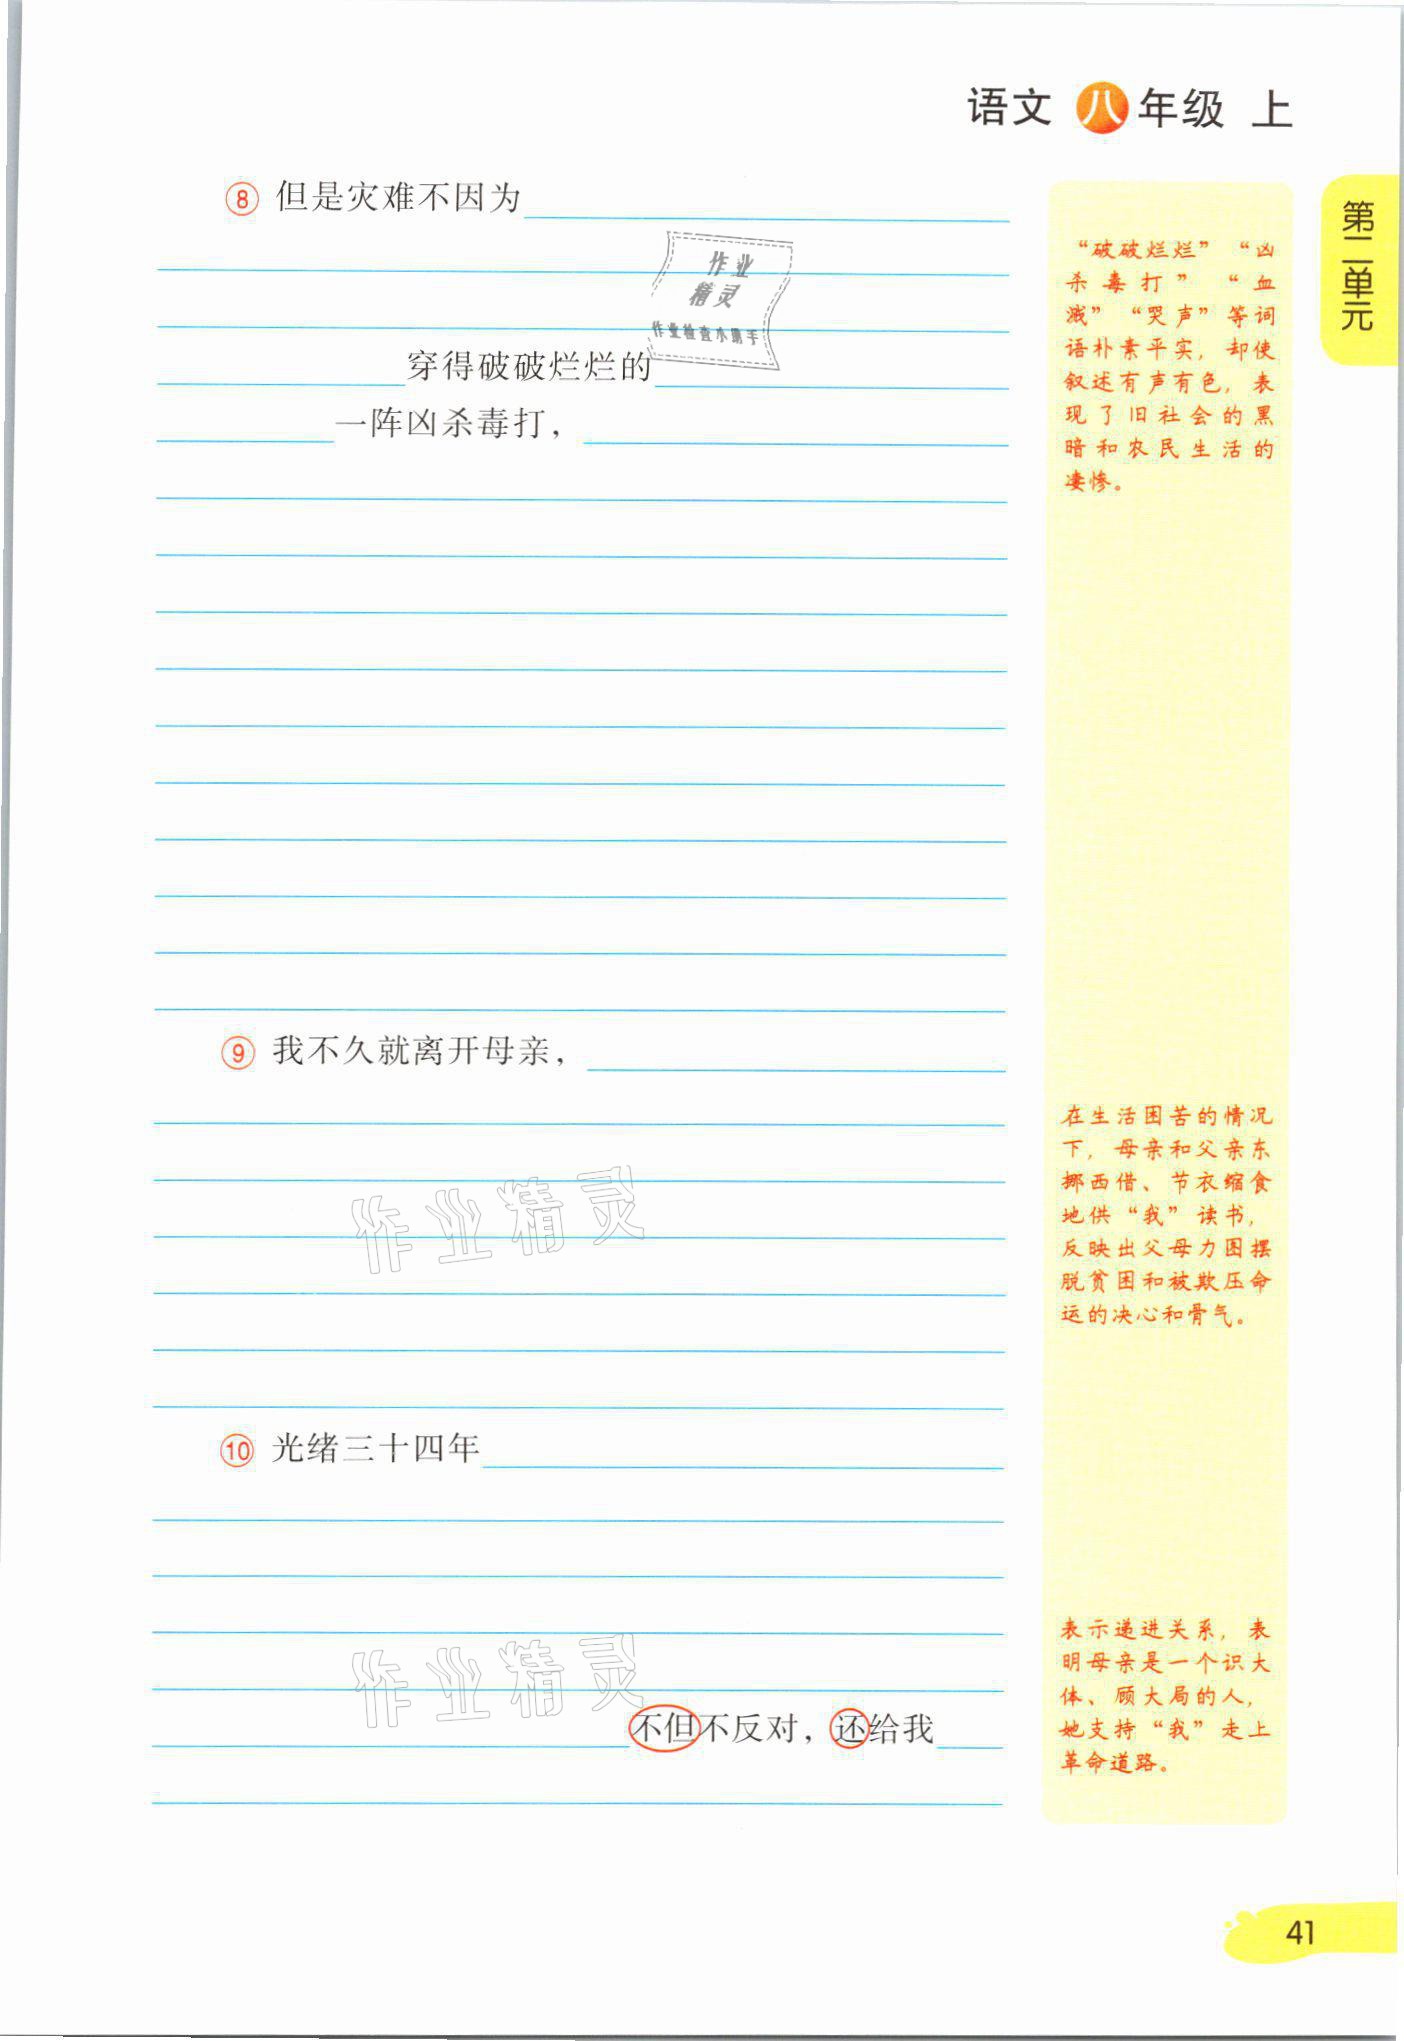 语文 八 年级 上
第二单元
⑧ 但是灾难不因为
穿得破破烂烂的
一阵凶杀毒打，
“破破烂烂”“凶
杀毒打”“血
溅”“哭声”等词
语朴素平实，却使
叙述有声有色，表
现了旧社会的黑
暗和农民生活的
凄惨。
作业
精灵
作业检查小助手
⑨ 我不久就离开母亲，
在生活困苦的情况
下，母亲和父亲东
挪西借、节衣缩食
地供“我”读书，
反映出父母力图摆
脱贫困和被欺压命
运的决心和骨气。
作业精灵
⑩ 光绪三十四年
不但不反对，还给我
表示递进关系，表
明母亲是一个识大
体、顾大局的人，
她支持“我”走上
革命道路。
作业精灵
41